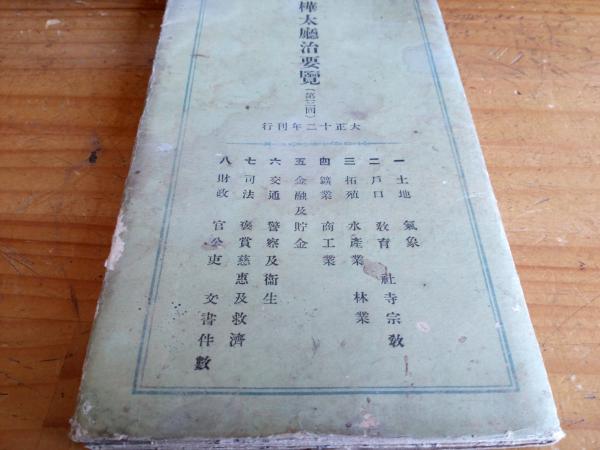 樺太廳治要覽（第三回）
大正十二年刊行
一 土地 氣象
二 戶口 敎育 社寺宗敎
三 拓殖 水產業 林業
四 鑛業 商工業
五 金融及貯金
六 交通 警察及衞生
七 司法 褒賞慈惠及救濟
八 財政 官公吏 文書件數